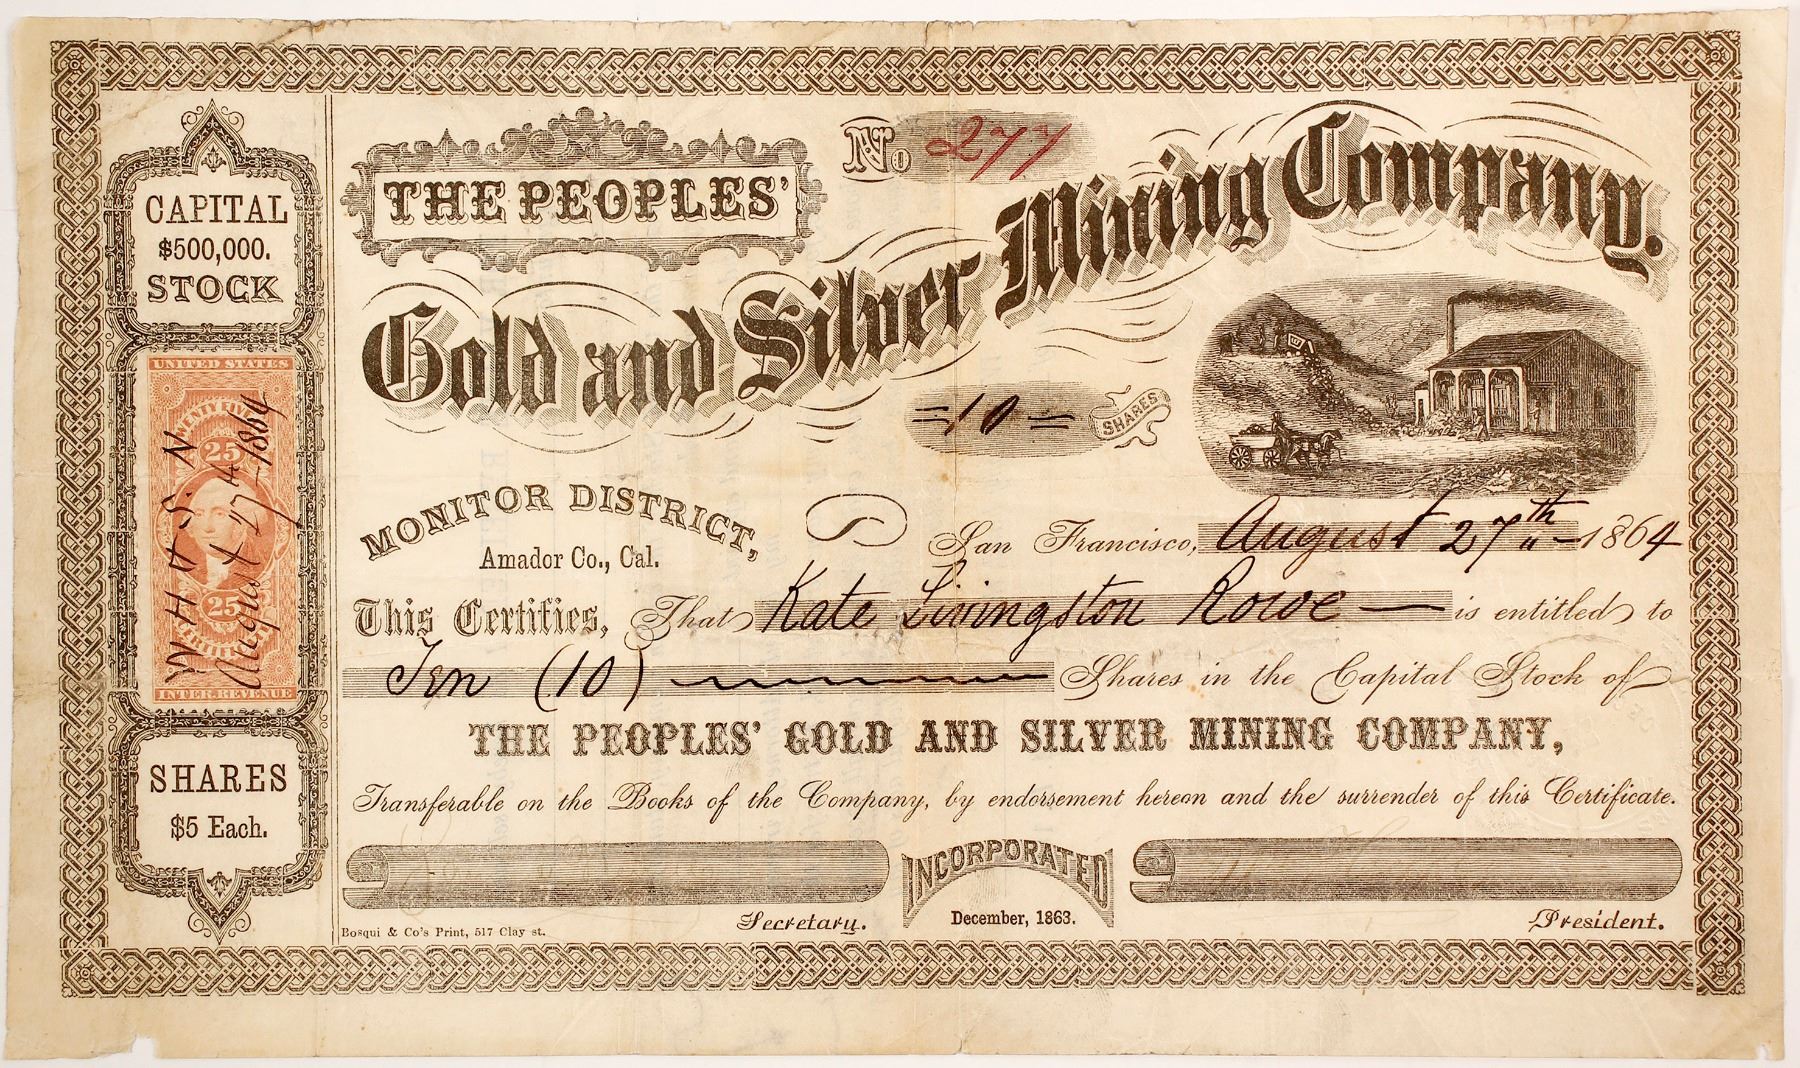 CAPITAL
$500,000.
STOCK
UNITED STATES
25
25
INTER. REVENUE
August 27th 1864
SHARES
$5 Each.
THE PEOPLES'
No 277
Gold and Silver Mining Company.
=10= SHARES
MONITOR DISTRICT,
Amador Co., Cal.
San Francisco, August 27th 1864
This Certifies, That Kate Livingston Rowe is entitled to
Ten (10) Shares in the Capital Stock of
THE PEOPLES' GOLD AND SILVER MINING COMPANY,
Transferable on the Books of the Company, by endorsement hereon and the surrender of this Certificate.
INCORPORATED
December, 1863.
Secretary.
President.
Bosqui & Co's Print, 517 Clay st.